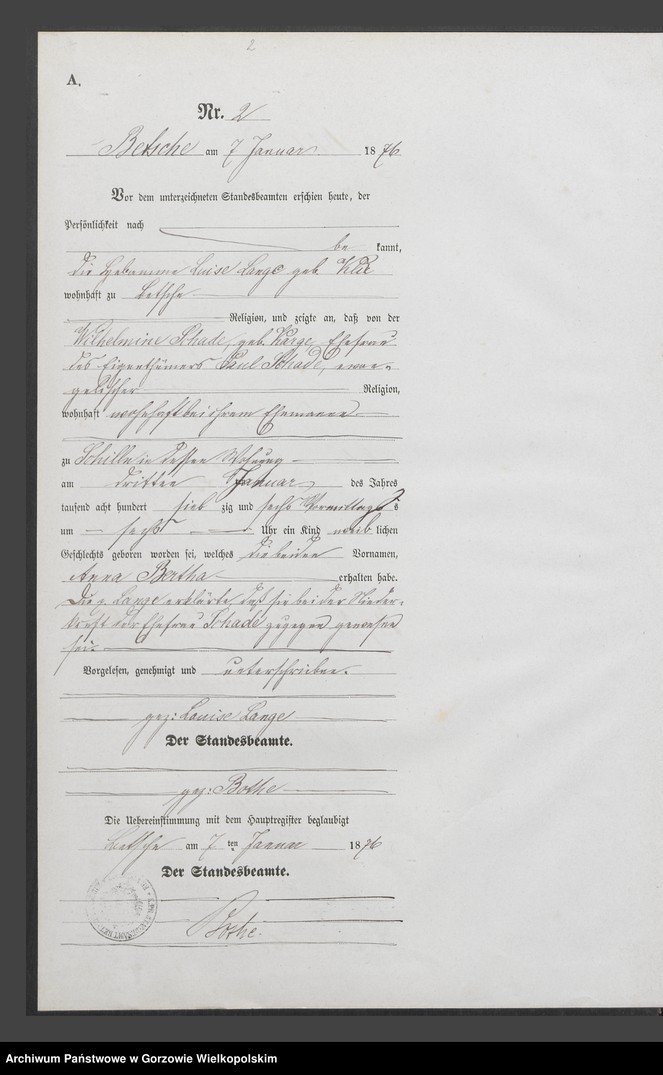 2
A.
Nr. 2
Betsche am 7 Januar 1876
Vor dem unterzeichneten Standesbeamten erschien heute, der
Persönlichkeit nach
be kannt,
die Hebamme Luise Lange geb.
wohnhaft zu Betsche
Religion, und zeigte an, daß von der
Wilhelmine Schade, geb. Karge, Ehefrau
des Eigenthümers Paul Schade, evan-
gelischer Religion,
wohnhaft wohnhaft bei ihrem Ehemanne
zu Schilln in dessen Wohnung
am dritten Januar des Jahres
tausend acht hundert sieb zig und sechs Vormittags
um sechs Uhr ein Kind weib lichen
Geschlechts geboren worden sei, welches die beiden Vornamen,
Anna Bertha erhalten habe.
Die p. Lange erklärte, daß sie bei der Nieder-
kunft der Ehefrau Schade zugegen gewesen
sei.
Vorgelesen, genehmigt und unterschrieben.
gez: Louise Lange
Der Standesbeamte.
gez: Bothe
Die Uebereinstimmung mit dem Hauptregister beglaubigt
Betsche am 7 ten Januar 1876
Der Standesbeamte.
Bothe.
Archiwum Państwowe w Gorzowie Wielkopolskim